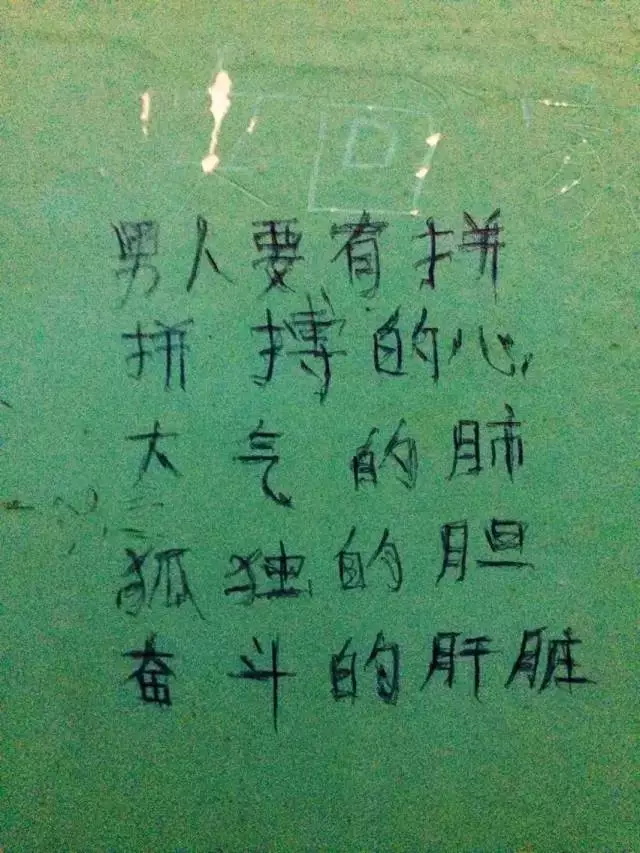 男人要有拼
拼搏的心
大气的肺
孤独的胆
奋斗的肝脏